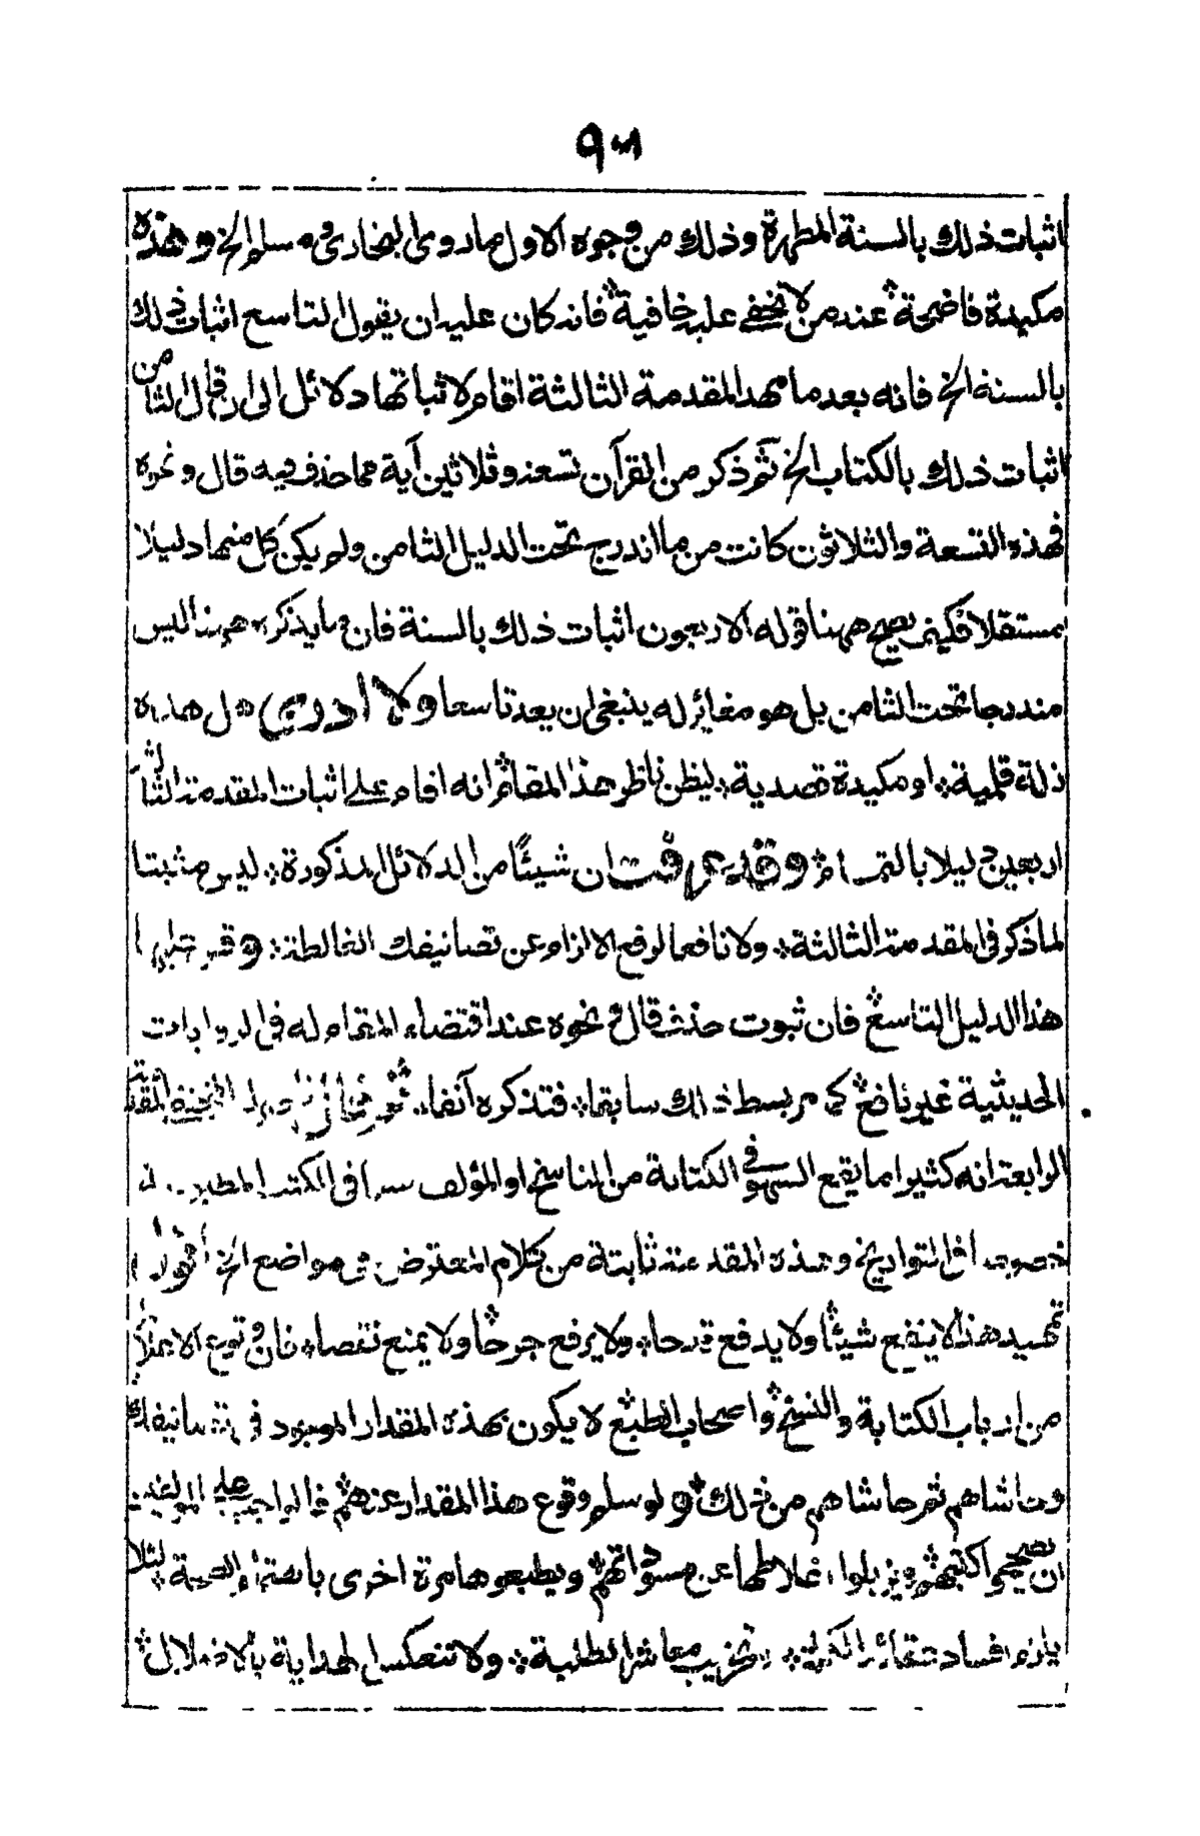 ٩٣
اثبات ذلك بالسنة المطهرة وذلك من وجوه الاول ما روى البخارى ومسلم الخ وهذه
مكيدة فاضحة عند من لا تخفى عليه خافية فانه كان عليه ان يقول التاسع اثبات ذلك
بالسنة الخ فانه بعد ما مهد المقدمة الثالثة اقام لاثباتها دلائل الى ان قال الثامن
اثبات ذلك بالكتاب الخ ثم ذكر من القرآن تسعة وثلاثين آية مما حذف فيه قال ونحوه
فهذه التسعة والثلاثون كانت من ما اندرج تحت الدليل الثامن ولم يكن كل منها دليلا
مستقلا فكيف يصح ههنا قوله الاربعون اثبات ذلك بالسنة فان ما يذكره ههنا ليس
مندرجا تحت الثامن بل هو مغائر له ينبغى ان يعد تاسعا ولا ادرى هل هذه
زلة قلمية او مكيدة قصدية ليظن ناظر هذا المقام انه اقام على اثبات المقدمة الثالثة
اربعين دليلا بالتمام وقد عرفت ان شيئا من الدلائل المذكورة ليس مثبتا
لما ذكر فى المقدمة الثالثة ولا نافعا لرفع الالزام عن تصانيفك الغالطة وقس عليها
هذا الدليل التاسع فان ثبوت حذف قال ونحوه عند اقتضاء المقام له فى الروايات
الحديثية غير نافع كما مر بسط ذلك سابقا فتذكره آنفا المقدمة
الرابعة انه كثيرا ما يقع السهو فى الكتابة من الناسخ او المؤلف سيما فى الكتب المطبوعة
خصوصا فى التواريخ وهذه المقدمة ثابتة من كلام المعترض فى مواضع الخ اقول
تمهيد هذا لا ينفع شيئا ولا يدفع قدحا ولا يرفع جرحا ولا يمنع نقصا فان وقوع الاغلاط
من ارباب الكتابة والنسخ واصحاب الطبع لا يكون بهذه المقدار الموجود فى تصانيفك
وحاشاهم ثم حاشاهم من ذلك ولو سلم وقوع هذا المقدار عنهم فالواجب على المؤلفين
ان يصححوا كتبهم ويزيلوا اغلاطها عن مسوداتهم ويطبعوها مرة اخرى باهتمام الصحة لئلا
يلزم افساد عقائد الكملة وتخريب معاشر الطلبة ولا تنعكس الهداية بالاضلال